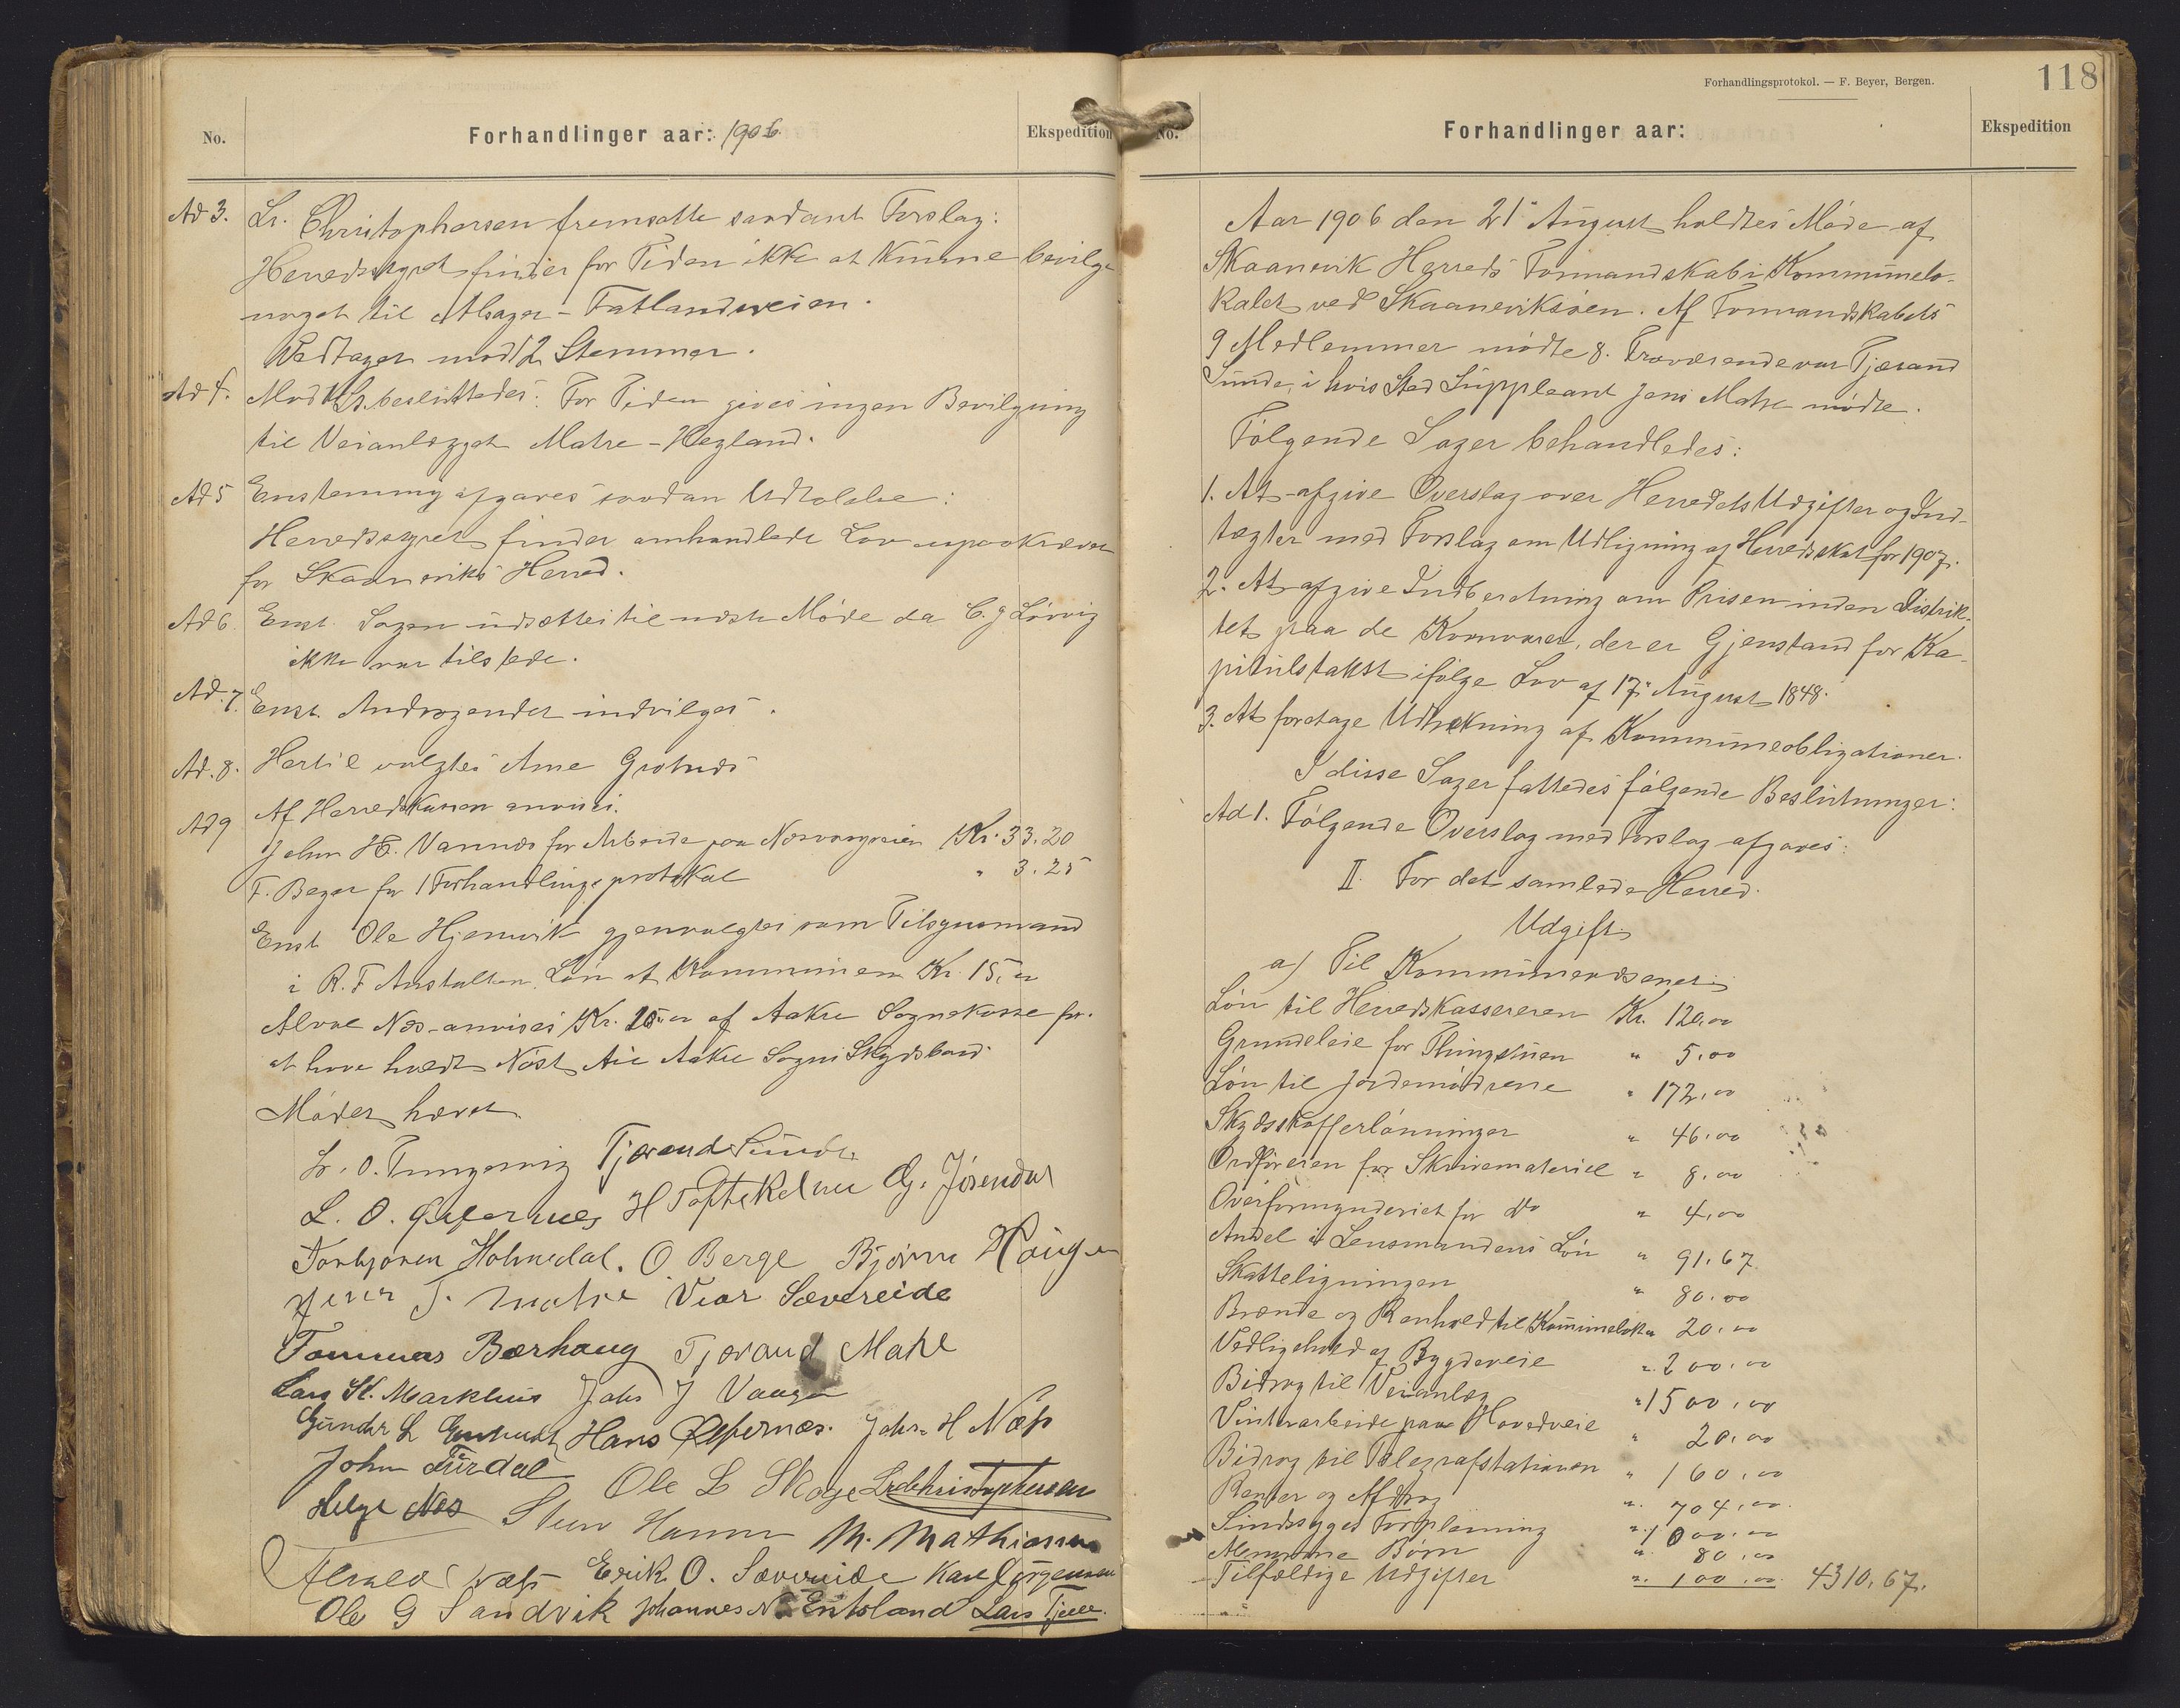 No.
Forhandlinger aar: 1906
Ekspedition
Ad 3. Lr. Christophersen fremsatte saadant Forslag:
Herredsstyret finder for Tiden ikke at kunne bevilge
noget til Alsager-Fatlandsveien.
Vedtaget mod 12 Stemmer.
Ad 4. Mod 1 St. besluttedes: For Tiden gives ingen Bevilgning
til Veianlægget Matre-Hegland.
Ad 5 Enstemmig afgaves saadan Udtalelse:
Herredsstyret finder omhandlede Lov upaakrævet
for Skaaneviks Herred.
Ad 6 Enst. Sagen udsættes til næste Møde da C. J Lörvig
ikke var tilstede.
Ad. 7. Enst. Andragendet indvilges.
Ad. 8. Hertil valgtes Arne Grotnes
Ad 9 Af Herredskassen anvises.
John H. Vannes for Arbeide paa Kr. 33.20
F. Beyer for 1 Forhandlingsprotokol " 3.25
Enst Ole Hjemvik gjenvalgtes som Tilsynsmand
i R. F Anstalten. Løn af Kommunen Kr. 15,00
Alvae Næs anvises Kr. 15,00 af Aakre Sognekasse for
at have holdt Nöst til Aakre Sogns Skydsbaad
Mødet hævet.
Lr. O. Tungesvig Tjerand Sunde
L. O. Øifernes H Toftekelner G. Jösendal
Torbjören Holmedal. O Berge Björn Haugen
Jens J. Matre Vear Sævereide
Tommas Bærhaug Tjerand Matre
Lars K. Markhus Johs J Vaage
Gunder L Hans Øifernæs. Johs. H Næss
John Furdal Ole L Skaye Lr Christophersen
Helge Næs Steen Hamre M. Mathiassen
Næss Erik O. Sævereide Karl Jørgensen
Ole G Sandvik Johannes N. Entsland Lars Tjelle.
Forhandlingsprotokol. — F. Beyer, Bergen.
118
No.
Forhandlinger aar:
Ekspedition
Aar 1906 den 21' August holdtes Møde af
Skaanevik Herreds Formandskab i Kommunelo-
kalet ved Skaaneviksøen. Af Formandskabets
9 Medlemmer mødte 8. Fraværende var Tjerand
Sunde, i hvis Sted Suppleant Jens Matre mødte.
Følgende Sager behandledes:
1. At afgive Overslag over Herredets Udgifter og Ind-
tægter med Forslag om Udligning af Herredsskat for 1907.
2. At afgive Indberetning om Prisen inden Distrik-
tet paa de Kornvarer, der er Gjenstand for Ka-
pitulstakst ifølge Lov af 17' August 1848.
3. At foretage Udtrækning af Kommuneobligationer.
I disse Sager fattedes følgende Beslutninger:
Ad 1. Følgende Overslag med Forslag afgaves:
II. For det samlede Herred.
Udgift
a) Til Kommunevæsenet:
Løn til Herredskassereren Kr. 120,00
Grundeleie for Thingstuen " 5,00
Løn til Jordemødrene " 172,00
Skydsskafferlønninger " 46,00
Ordføreren for Skrivemateriel " 8,00
Overformynderiet for do " 4,00
Andel i Lensmandens Løn " 91,67
Skatteligningen " 80,00
Brænde og Renhold til Kommunelok. " 20,00
Vedligehold af Bygdeveie " 200,00
Bidrag til Veianlæg " 1500,00
Vinterarbeide paa Hovedveie " 20,00
Bidrag til Telegrafstationen " 160,00
Renter og Afdrag " 704,00
Sindssyges Forpleining " 1000,00
Børn " 80,00
Tilfældige Udgifter " 100,00 4310,67.